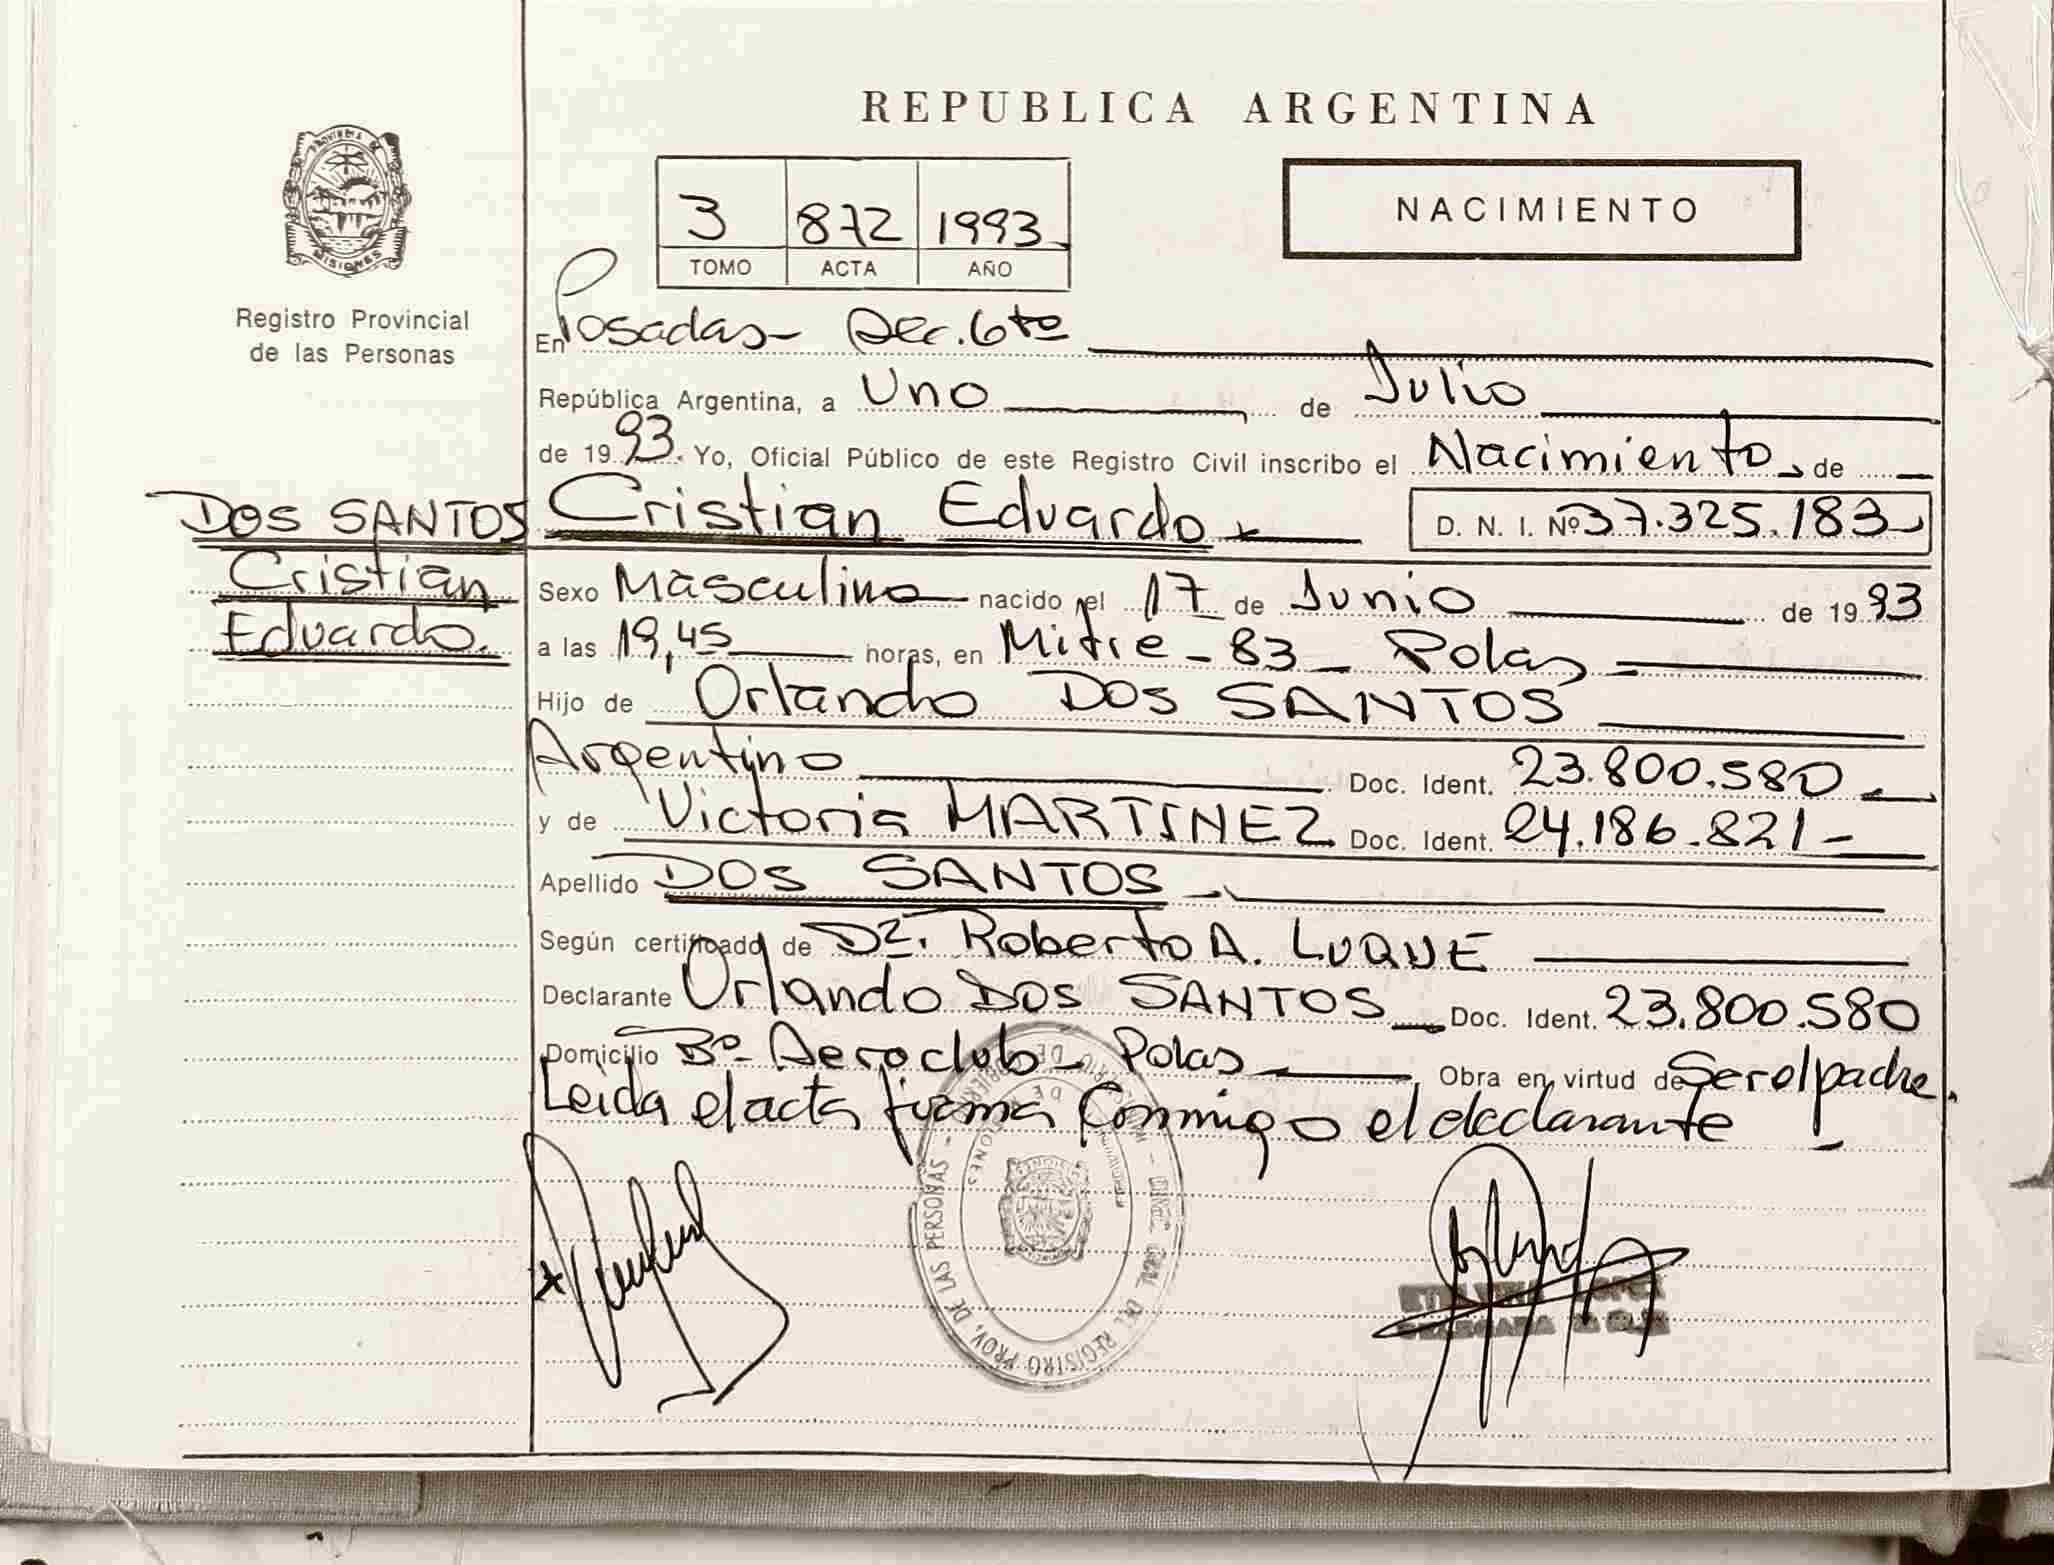 REPUBLICA ARGENTINA
NACIMIENTO
3 872 1993
TOMO ACTA AÑO
PROVINCIA DE
MISIONES
Registro Provincial
de las Personas
En Posadas - Sec. 6ta
República Argentina, a Uno de Julio
de 1993. Yo, Oficial Público de este Registro Civil inscribo el Nacimiento, de
DOS SANTOS
Cristian
Eduardo.
Cristian Eduardo D. N. I. Nº 37.325.183
Sexo Masculino nacido el 17 de Junio de 1993
a las 19,45 horas, en Mitre - 83 - Pdas
Hijo de Orlando DOS SANTOS
Argentino Doc. Ident. 23.800.580
y de Victoria MARTINEZ Doc. Ident. 24.186.821
Apellido DOS SANTOS
Según certificado de Dr. Roberto A. LUQUE
Declarante Orlando DOS SANTOS Doc. Ident. 23.800.580
Domicilio Bº Aeroclub - Pdas, Obra en virtud de Ser el padre.
Leida el acta firma conmigo el declarante
DEL REGISTRO PROV. DE LAS PERSONAS -